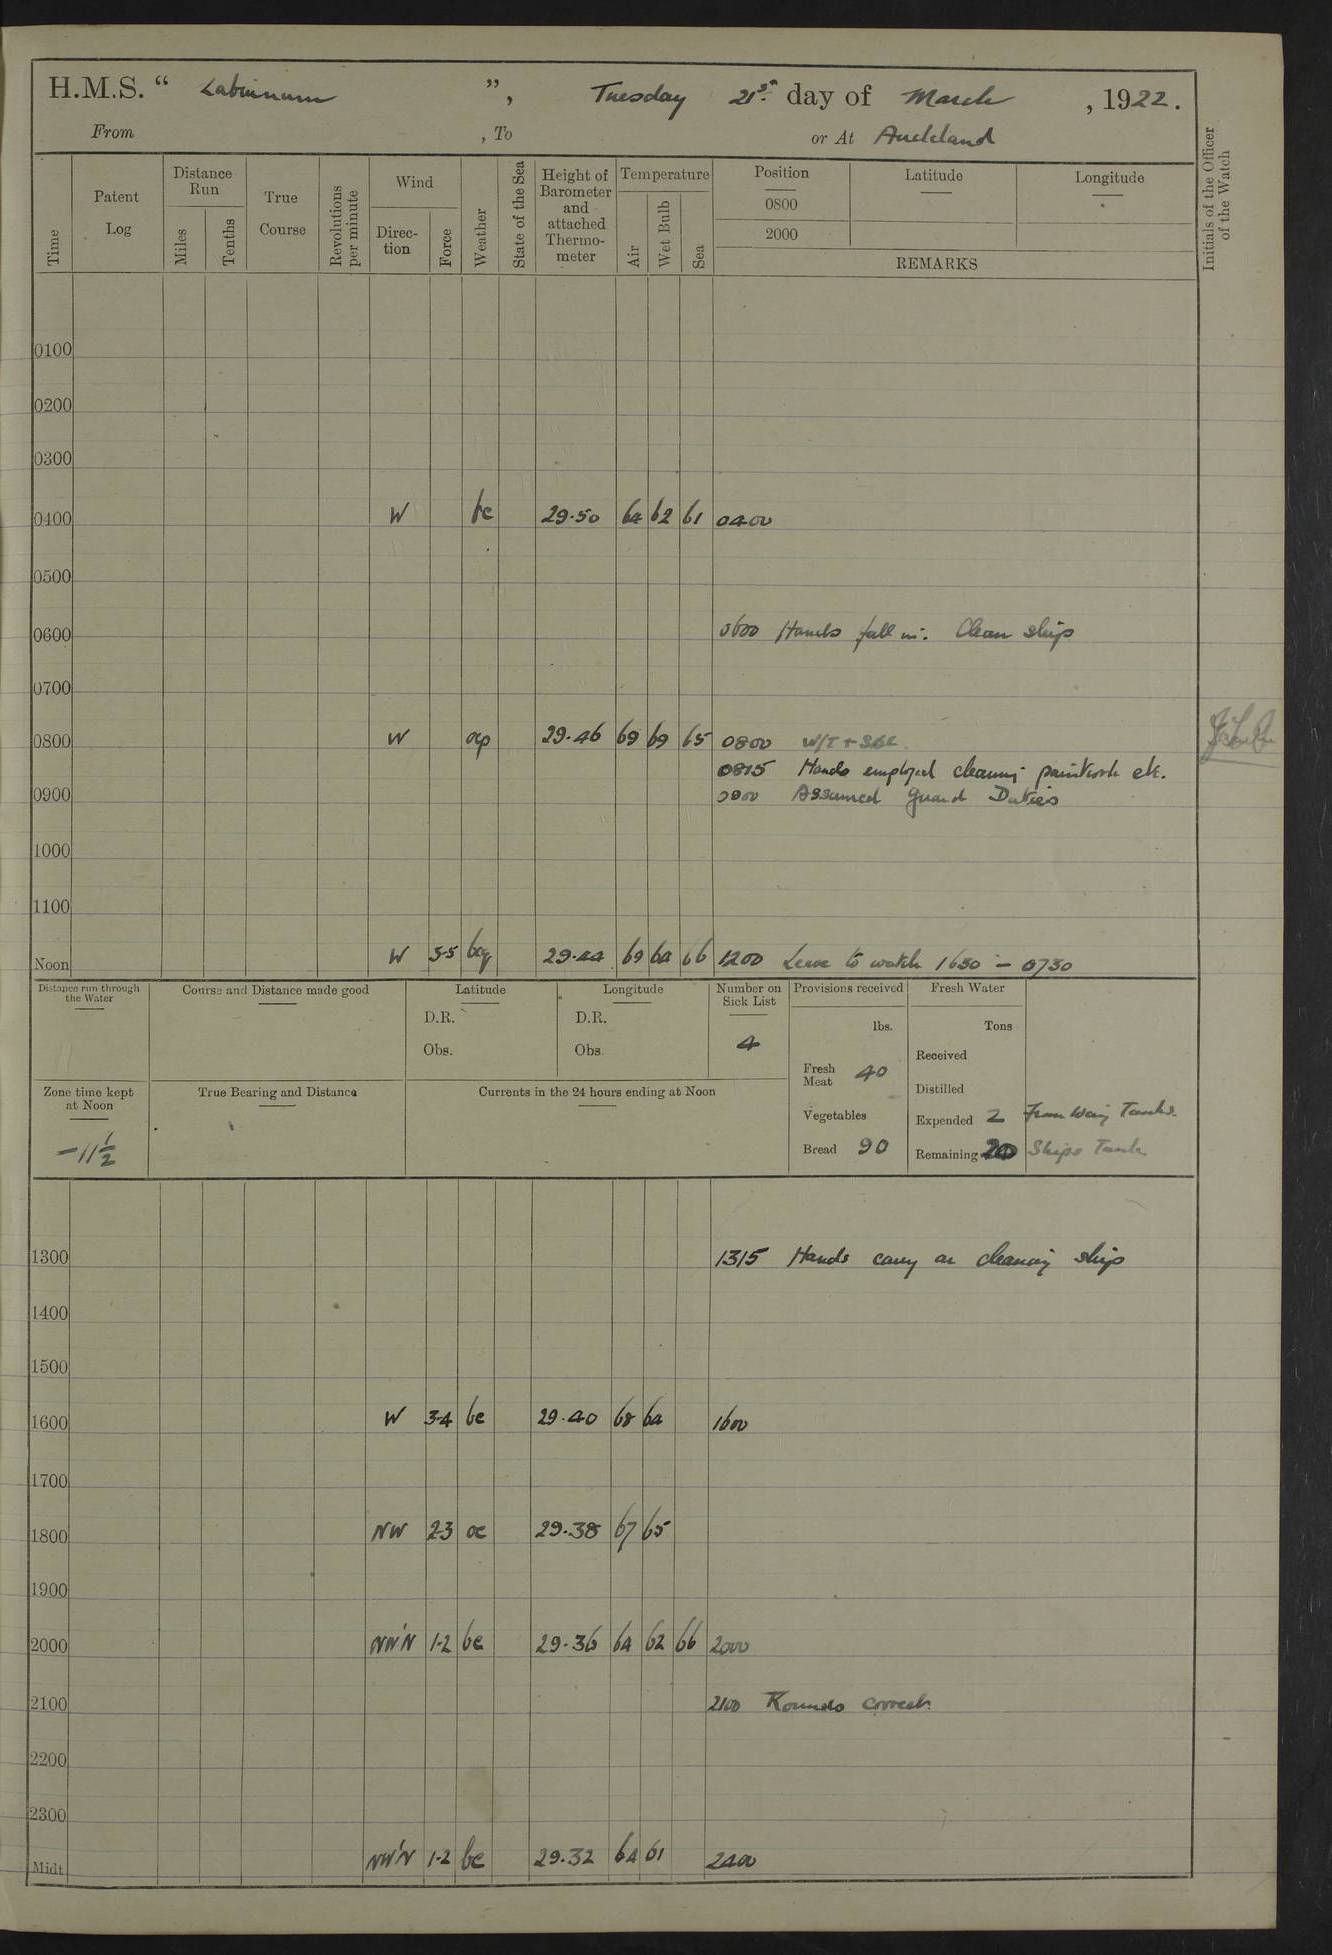 H.M.S. “ Laburnum ”, Tuesday 21st day of March , 1922.
From , To or At Auckland
Time Patent Log Distance Run Miles Tenths True Course Revolutions per minute Wind Direc-tion Force Weather State of the Sea Height of Barometer and attached Thermo-meter Temperature Air Wet Bulb Sea Position 0800 2000 Latitude Longitude REMARKS Initials of the Officer of the Watch
0100
0200
0300
0400 W bc 29.50 64 62 61 0400
0500
0600 0600 Hands fall in. Clean ship
0700
0800 W ocp 29.46 69 69 65 0800 W/T +
0815 Hands employed cleaning paintwork etc.
0900 0900 Assumed Guard Duties
1000
1100
Noon W 3-5 bcq 29.44 69 64 66 1200 Leave to watch 1630 – 0730
Distance run through the Water Course and Distance made good Latitude Longitude Number on Sick List Provisions received Fresh Water
D.R. D.R. lbs. Tons
Obs. Obs. 4 Received
Fresh Meat 40 Distilled
Zone time kept at Noon True Bearing and Distance Currents in the 24 hours ending at Noon
Vegetables Expended 2 From Tanks.
-11½ Bread 90 Remaining 20 Ships Tank
1300 1315 Hands carry on cleaning ship
1400
1500
1600 W 3-4 bc 29.40 68 64 1600
1700
1800 NW 2-3 oc 29.38 67 65
1900
2000 NW'N 1-2 bc 29.36 64 62 66 2000
2100 2100 Rounds correct.
2200
2300
Midt. NW'N 1-2 bc 29.32 64 61 2400